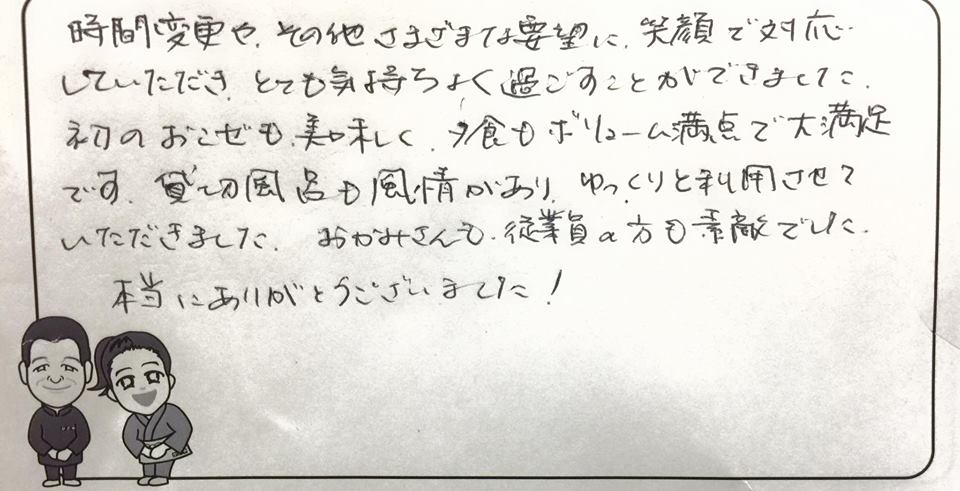 時間変更や、その他さまざまな要望に、笑顔で対応
していただき、とても気持ちよく過ごすことができました。
初のおこぜも、美味しく、夕食もボリューム満点で大満足
です。貸切風呂も風情があり、ゆっくりと利用させて
いただきました。おかみさんも、従業員の方も素敵でした。
本当にありがとうございました!